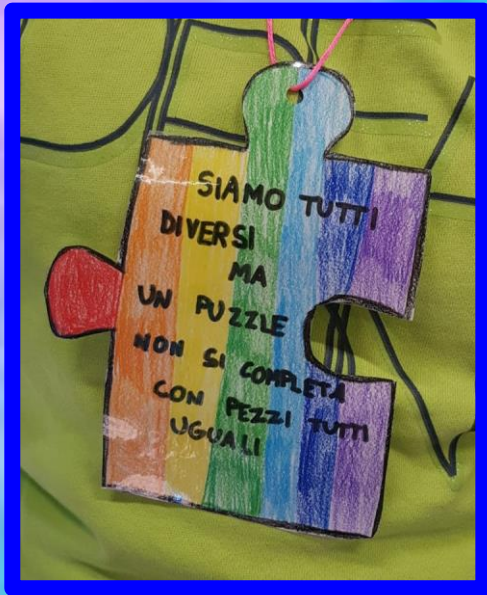 SIAMO TUTTI
DIVERSI
MA
UN PUZZLE
NON SI COMPLETA
CON PEZZI TUTTI
UGUALI